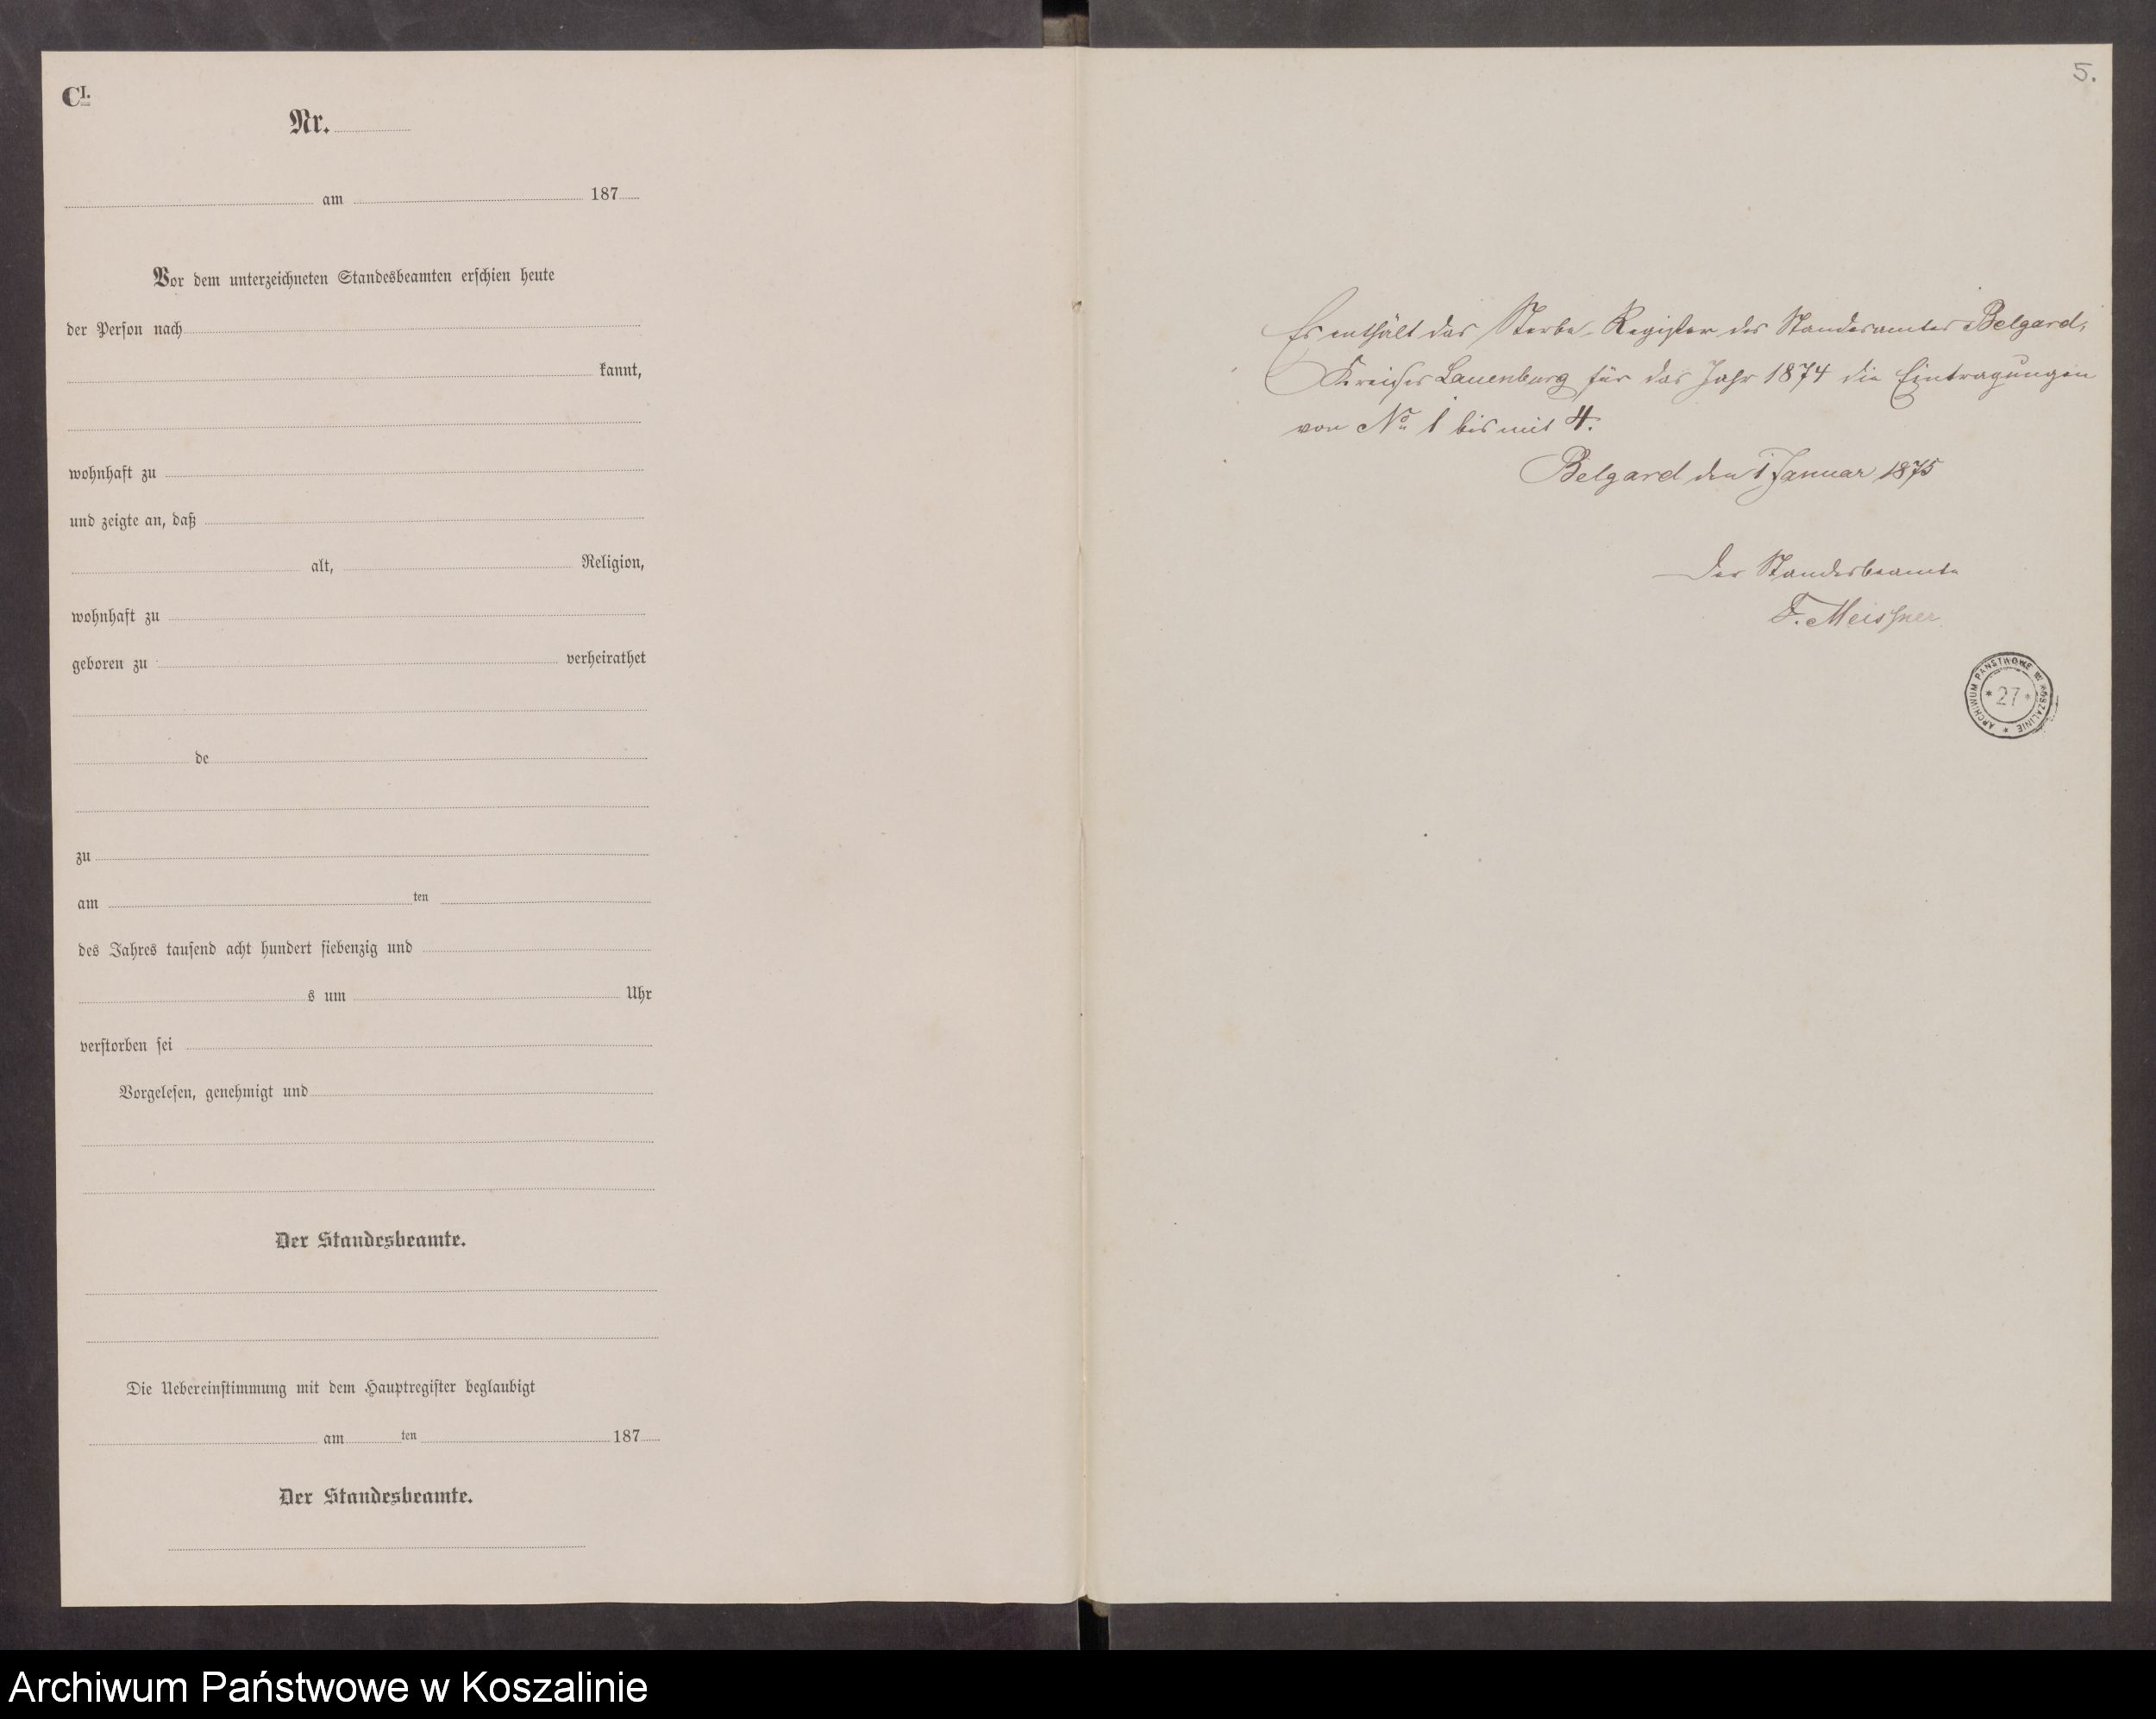 C I.
Nr.
am 187
Vor dem unterzeichneten Standesbeamten erschien heute
der Person nach
kannt,
wohnhaft zu
und zeigte an, daß
alt, Religion,
wohnhaft zu
geboren zu verheirathet
de
zu
am ten
des Jahres tausend acht hundert siebenzig und
s um Uhr
verstorben sei
Vorgelesen, genehmigt und
Der Standesbeamte.
Die Uebereinstimmung mit dem Hauptregister beglaubigt
am ten 187
Der Standesbeamte.
5.
Es enthält das Sterbe-Register des Standesamtes Belgard,
Kreises Lauenburg für das Jahr 1874 die Eintragungen
von No 1 bis mit 4.
Belgard den 1 Januar 1875
Der Standesbeamte
F. Meissner
ARCHIWUM PAŃSTWOWE W KOSZALINIE
* 27 *
Archiwum Państwowe w Koszalinie